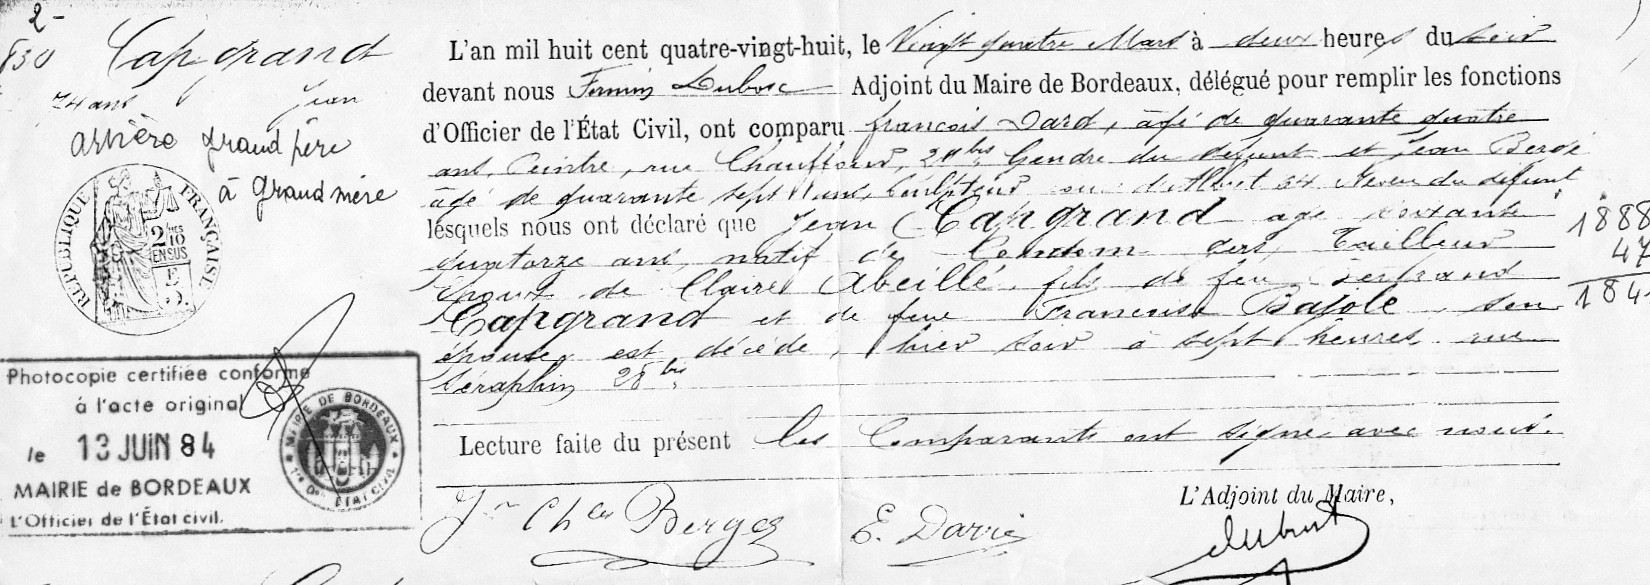 2-
830
Capgrand
74 ans
Jean
arrière grand père
à grand mère
RÉPUBLIQUE FRANÇAISE
2/10
EN SUS
13 JUIN 84
Photocopie certifiée conforme
à l'acte original
le 13 JUIN 84
MAIRIE de BORDEAUX
L'Officier de l'État civil.
MAIRIE DE BORDEAUX
ÉTAT CIVIL
L'an mil huit cent quatre-vingt-huit, le Vingt quatre Mars à deux heures du soir
devant nous Firmin Dubosc Adjoint du Maire de Bordeaux, délégué pour remplir les fonctions
d'Officier de l'État Civil, ont comparu françois Dard, âgé de quarante quatre
ans, Peintre, rue Chauffour, 28 bis Gendre du defunt et Jean Bergé
âgé de quarante sept ans, Sculpteur 34 Neveu du défunt
lesquels nous ont déclaré que Jean Capgrand age soixante
quatorze ans, natif de Condom Gers, Tailleur
époux de Claire Abeillé fils de feu Bertrand
Capgrand et de feue Bajole son
épouse, est décédé, hier soir à sept heures, rue
Séraphin 28 bis
Lecture faite du présent les Comparants ont signé avec nous.
L'Adjoint du Maire,
Jn Ches Berges
E. Darvé
1888
47
184